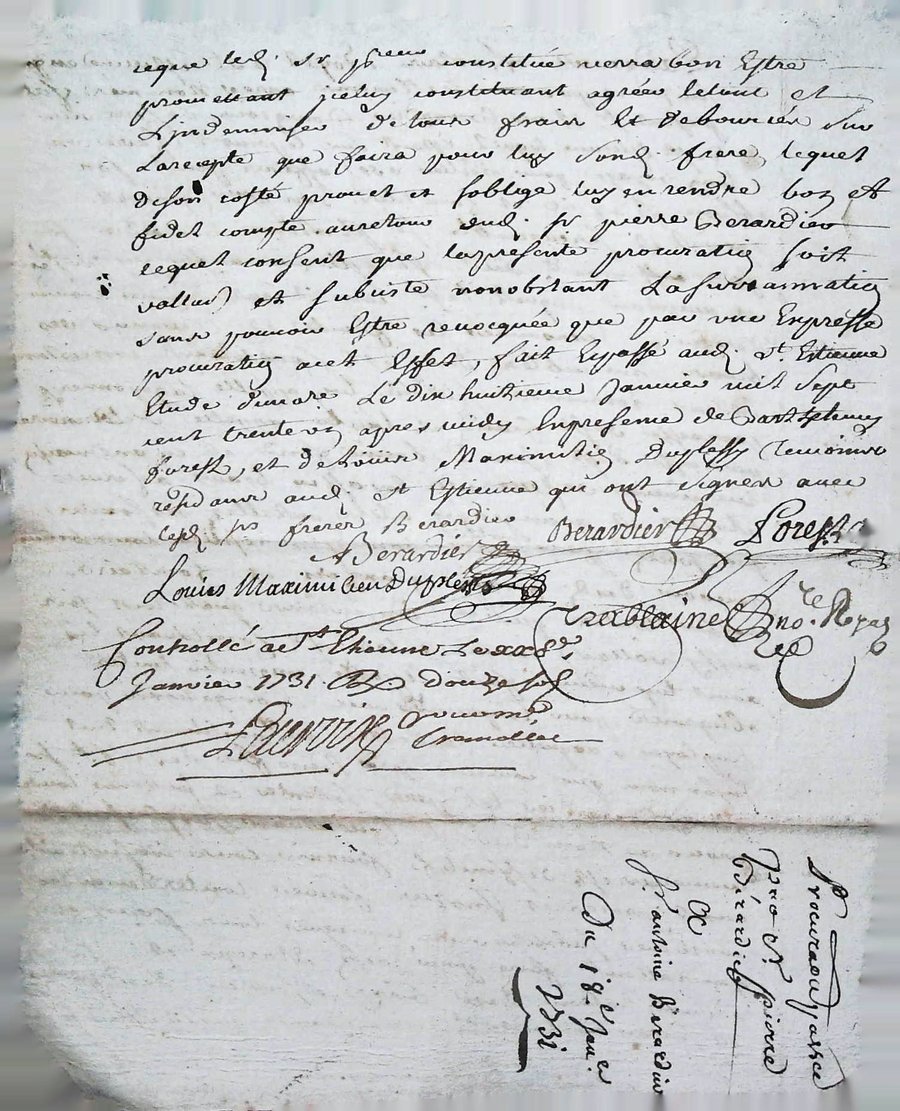 ceque led. Sr. constitué verra bon Estre
promettant icelui constituant agréer letout et
Lindemniser detous fraix Et debourcés Sur
Larecepte que faira pour luy Sond. frere, lequel
deson costé promet et soblige luy en rendre bon et
fidel compte auretour dud. Sr pierre Berardier
lequel consent que lapresente procuration soit
vallur et subciste nonobstant Lasurannation
sans pouvoir Estre revocquée que par une Expresse
procuration acet Effet, fait Epassé aud. St. Estienne
Etude dunore Le dix huitieme Janvier mil sept
cent trente un apres midy Enpresence de
forest, et de Louis Maximilien Duplessy Temoins
residans aud. St Estienne qui ont signes avec
lesd. srs freres Berardier
Berardier Berardier Forest
Louis Maximilien Duplessis
Trablaine nore Royal
Controllé a St. Ethienne Le
Janvier 1731 R douze sols

Procuraon passée
par Sr. pierre
Bérardier
a
Sr. antoine Berardier
Du 18e Janer.
1731